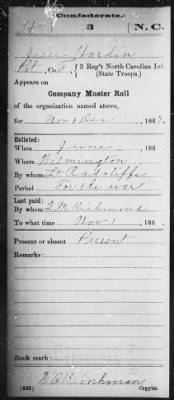 Confederate.
3 N.C.
Jesse Hardin
Pvt, Co. F, 3 Reg't North Carolina Inf.
(State Troops.)
Appears on
Company Muster Roll
of the organization named above,
for Nov & Dec, 186
Enlisted:
When June, 186
Where Wilmington
By whom Lt Radcliffe
Period For the war
Last paid:
By whom Q.M. Richmond
To what time Nov 1, 186
Present or absent Present
Remarks:
Book mark:
(642) Copyist.